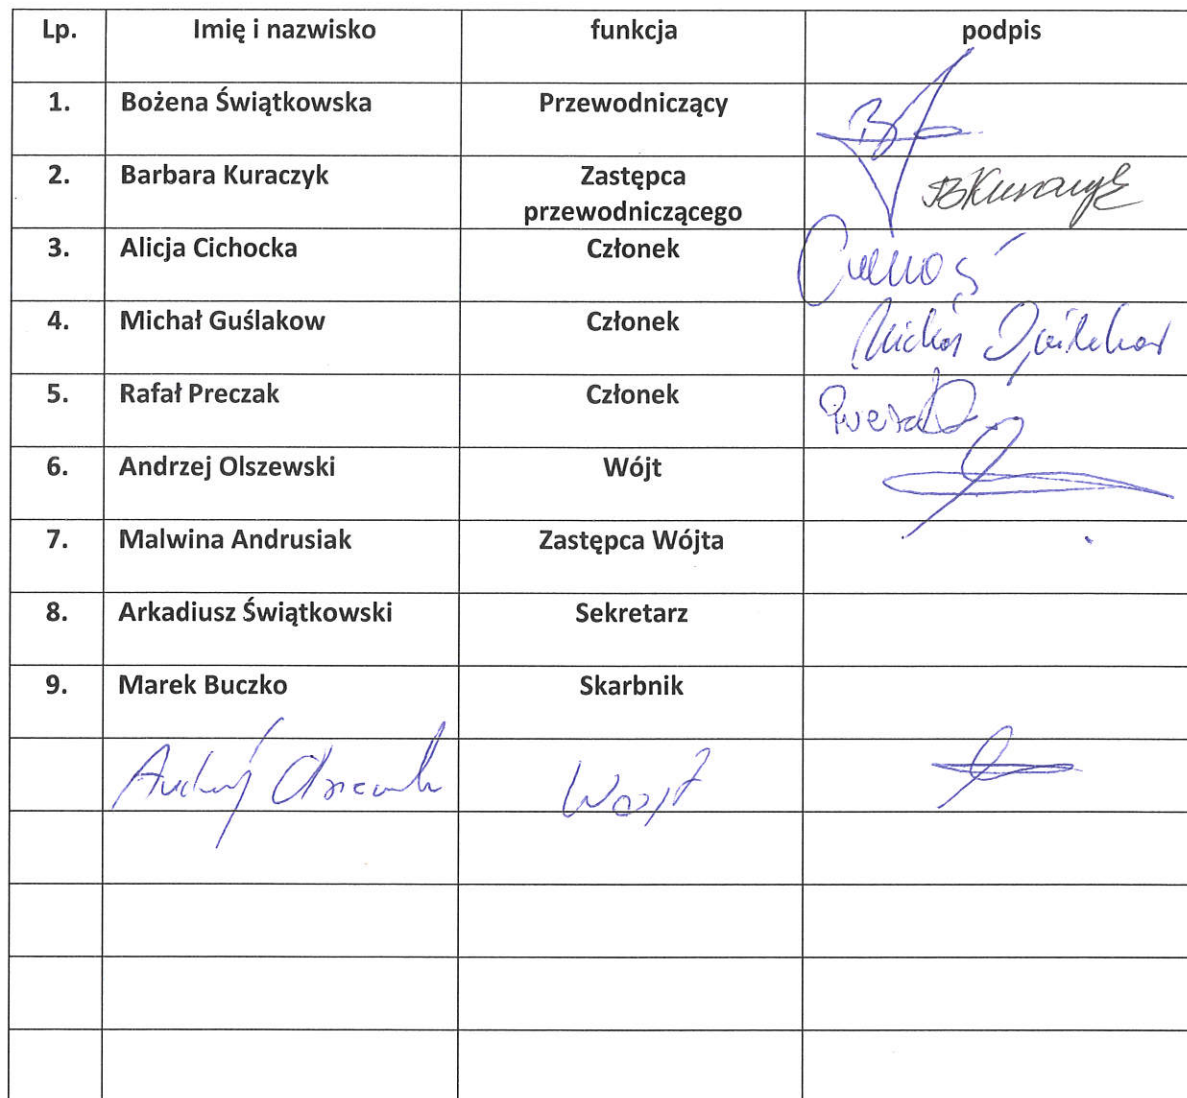 Lp. Imię i nazwisko funkcja podpis
1. Bożena Świątkowska Przewodniczący
2. Barbara Kuraczyk Zastępca przewodniczącego BKuraczyk
3. Alicja Cichocka Członek
4. Michał Guślakow Członek Michał
5. Rafał Preczak Członek Preczak
6. Andrzej Olszewski Wójt
7. Malwina Andrusiak Zastępca Wójta
8. Arkadiusz Świątkowski Sekretarz
9. Marek Buczko Skarbnik
Andrzej Olszewski Wójt